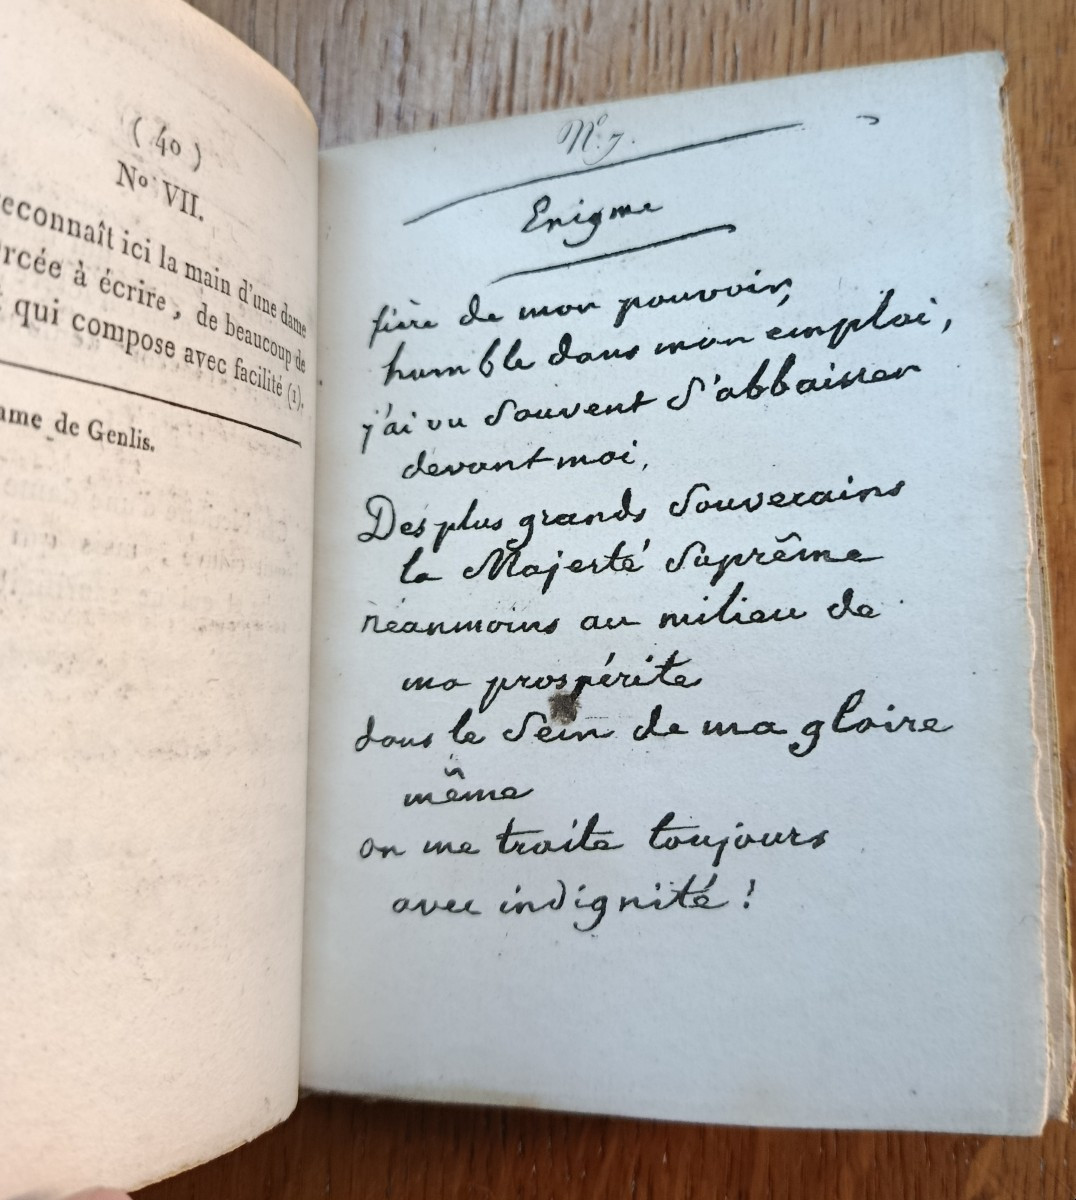 ( 40 )
N° VII.
econnaît ici la main d'une dame
rcée à écrire, de beaucoup de
qui compose avec facilité (1).
ame de Genlis.
N°. 7.
Enigme
fière de mon pouvoir,
humble dans mon emploi,
j'ai vu souvent s'abbaisser
devant moi,
Des plus grands souverains
la Majesté suprême
néanmoins au milieu de
ma prospérité
dans le sein de ma gloire
même
on me traite toujours
avec indignité !